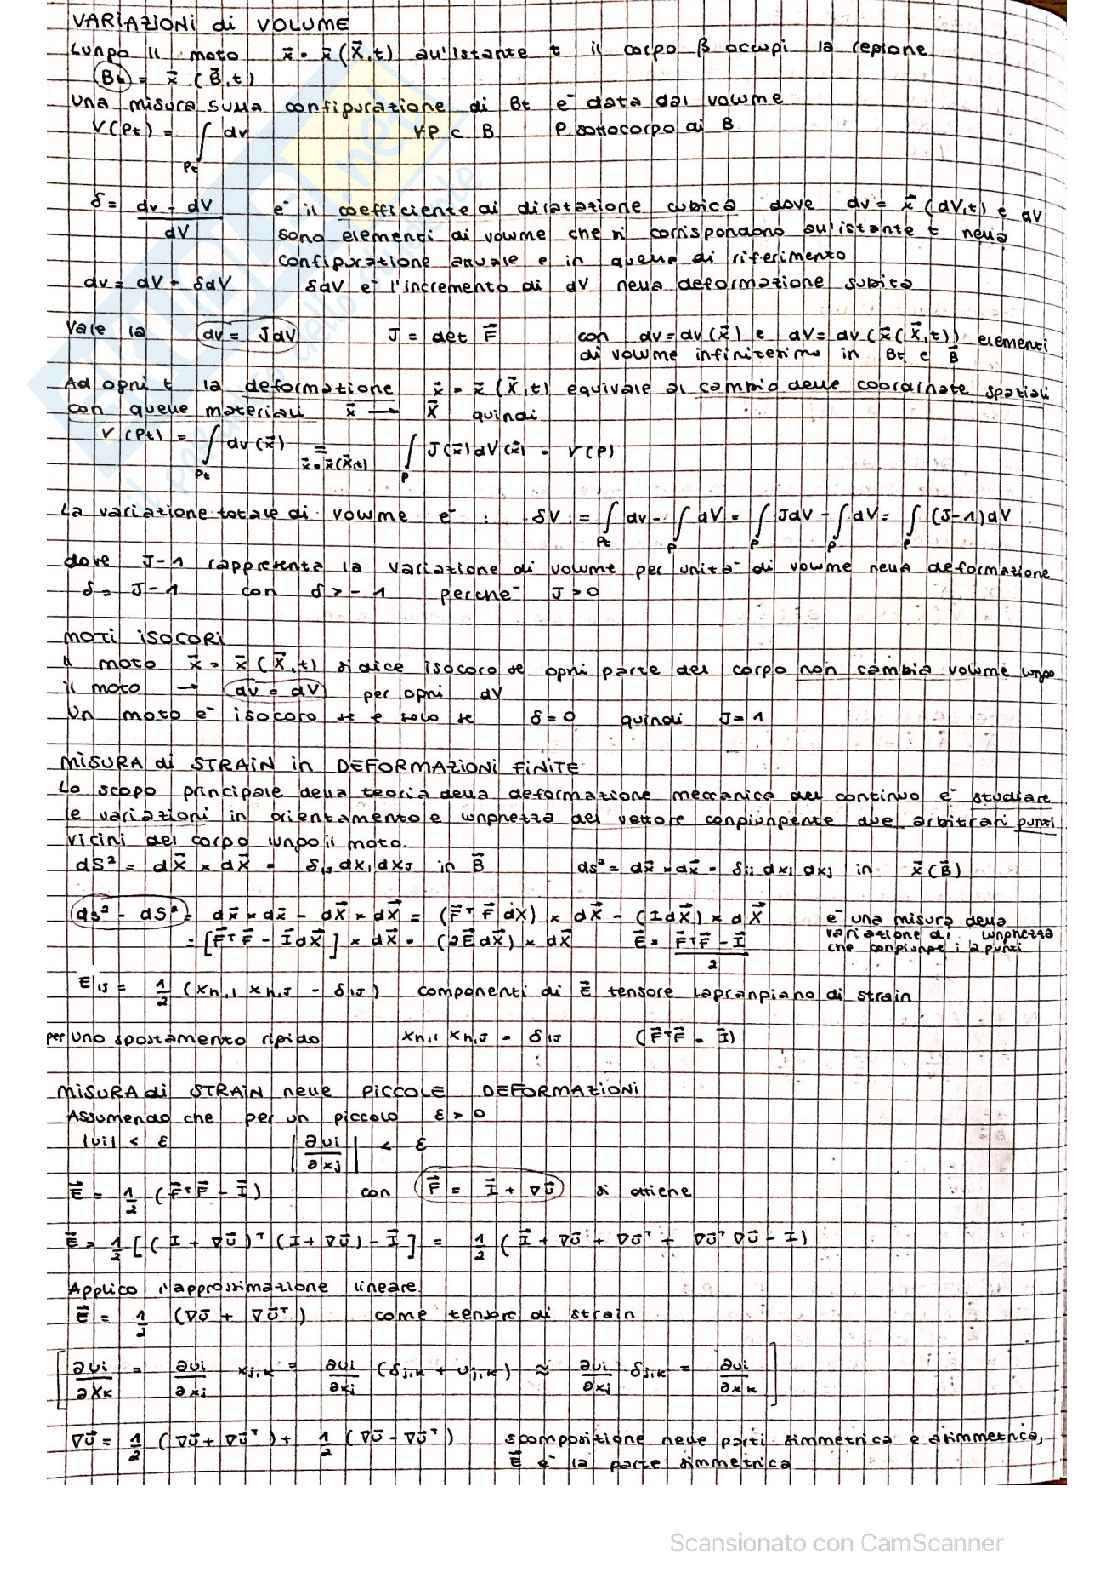 VARIAZIONI di VOLUME
Lungo il moto x⃗ = x⃗ (X⃗,t) all'istante t il corpo β occupi la regione
Bt = x⃗ (B⃗,t)
una misura sulla configurazione di Bt e' data dal volume
V(Pt) = ∫Pt dv ∀P ⊂ B P sottocorpo di B
δ = (dv - dV)/dV e' il coefficiente di dilatazione cubica dove dv = x⃗ (dV,t) e dV
sono elementi di volume che si corrispondono all'istante t nella
configurazione attuale e in quella di riferimento
dv = dV + δdV δdV e' l'incremento di dV nella deformazione subita
Vale la dv = JdV J = det F⃗ con dv = dv(x⃗) e dV = dV(x⃗(X⃗,t)) elementi
di volume infinitesimo in Bt e B⃗
Ad ogni t la deformazione x⃗ = x⃗ (X⃗,t) equivale al cambio delle coordinate spaziali
con quelle materiali x⃗ → X⃗ quindi
V(Pt) = ∫Pt dv(x⃗) = x⃗=x⃗(X⃗,t) ∫P J(x⃗)dV(x⃗) = V(P)
La variazione totale di volume e' : δV = ∫Pt dv - ∫P dV = ∫P JdV - ∫P dV = ∫P (J-1)dV
dove J-1 rappresenta la variazione di volume per unita' di volume nella deformazione
δ = J-1 con δ > -1 perche' J>0
MOTI ISOCORI
Il moto x⃗ = x⃗ (X⃗,t) si dice isocoro se ogni parte del corpo non cambia volume lungo
il moto → dv = dV per ogni dV
Un moto e' isocoro se e solo se δ = 0 quindi J = 1
MISURA di STRAIN in DEFORMAZIONI FINITE
Lo scopo principale della teoria della deformazione meccanica del continuo e' studiare
le variazioni in orientamento e lunghezza del vettore congiungente due arbitrari punti
vicini del corpo lungo il moto.
dS² = dX⃗ × dX⃗ = δIJ dXI dXJ in B⃗ ds² = dx⃗ × dx⃗ = δij dxi dxj in x⃗(B⃗)
ds² - dS² = dx⃗ × dx⃗ - dX⃗ × dX⃗ = (F⃗ᵀ F⃗ dX⃗) × dX⃗ - (I dX⃗) × dX⃗ e' una misura della
= [F⃗ᵀF⃗ - I⃗dX⃗] × dX⃗ = (2E⃗dX⃗) × dX⃗ E⃗ = (F⃗ᵀF⃗ - I⃗)/2 variazione di lunghezza
che congiunge i 2 punti
EIJ = 1/2 (xh,I × xh,J - δIJ) componenti di E⃗ tensore lagrangiano di strain
per uno spostamento rigido xh,I xh,J = δIJ (F⃗ᵀF⃗ = I⃗)
MISURA di STRAIN nelle PICCOLE DEFORMAZIONI
Assumendo che per un piccolo ε > 0
|ui| < ε |∂ui/∂xj| < ε
E⃗ = 1/2 (F⃗ᵀF⃗ - I⃗) con F⃗ = I⃗ + ∇U⃗ si ottiene
E⃗ = 1/2 [(I + ∇U⃗)ᵀ (I + ∇U⃗) - I⃗] = 1/2 (I⃗ + ∇U⃗ + ∇U⃗ᵀ + ∇U⃗ᵀ ∇U⃗ - I)
Applico l'approssimazione lineare
E⃗ = 1/2 (∇U⃗ + ∇U⃗ᵀ) come tensore di strain
[∂ui/∂Xk = ∂ui/∂xj xj,k = ∂ui/∂xj (δj,k + uj,k) ≈ ∂ui/∂xj δj,k = ∂ui/∂xk]
∇U⃗ = 1/2 (∇U⃗ + ∇U⃗ᵀ) + 1/2 (∇U⃗ - ∇U⃗ᵀ) scomposizione nelle parti simmetrica e asimmetrica,
E⃗ e' la parte simmetrica
Scansionato con CamScanner